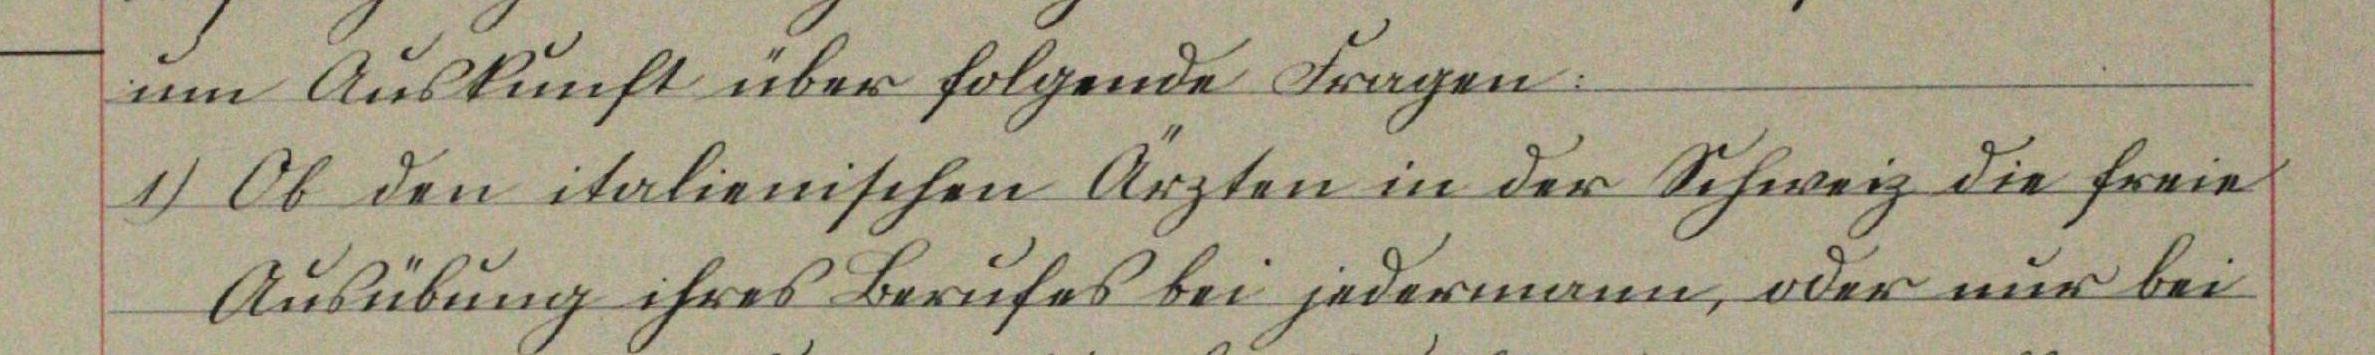 um Auskunft über folgende Fragen:
1) Ob den italienischen Ärzten in der Schweiz die freie
Ausübung ihres Berufes bei jedermann, oder nur bei